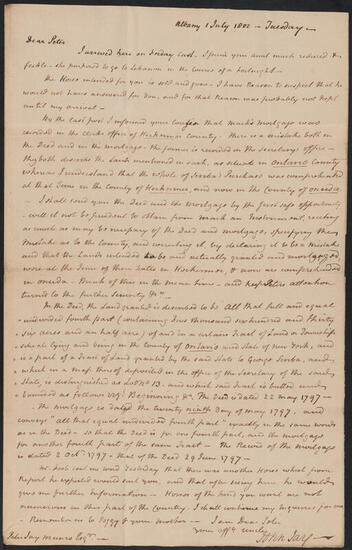 Albany 1 July 1800 — Tuesday —
Dear Peter
I arrived here on Friday last. I found your aunt much reduced &
feeble — she proposed to go to Lebanon in the course of a fortnight —
The Horse intended for you is sold and gone — I have Reason to suspect that he
would not have answered for you, and for that Reason was probably not kept
until my arrival —
By the last post I informed your that mark's mortgage was
recorded in the clerks office of Herkemer County. There is a mistake both in
the Deed and in the mortgage. the former is recorded in the Secretarys office —
they both describe the Lands mentioned in each, as situate in Ontario County
whereas I understand that the whole of Scriba's Purchase was comprehended
at that Time in the county of Herkemer, and now in the County of oneida.
I shall send you the Deed and the mortgage by the first safe opportunity
— will it not be prudent to obtain from mark an Instrument, reciting
as much as may be necessary of the Deed and mortgage, specifying the
mistake as to the County, and correcting it, by declaring it to be a mistake
and that the Lands intended to be and actually granted and mortgaged,
were at the Time of their Dates in Herkemer, & now are comprehended
in oneida — Think of this in the mean time — and keep Peters attention
turned to the further security &c.
In the Deed, the Land granted is described to be All that full and equal
undivided fourth part (containing Two thousand six hundred and Thirty
six acres and an half acre) of and in a certain Tract of Land or Township
lying and being in the county of Ontario and State of New York, and
is a part of a Tract of Land granted by the said State to George Scriba, and
which in a map thereof deposited in the office of the Secretary of the said
State, is distinguished as Lot No. 13. and which said Tract is butted and
bounded as follows viz. Beginning &c. The Deed is dated 22 may 1797 —
The mortgage is dated the twenty ninth Day of may 1797, and
conveys "all that equal undivided fourth part" exactly in the same words
as in the Deed — so that the Deed is for one fourth part, and the mortgage
for another fourth part of the same Tract — The Record of the mortgage
is dated 2 Oct. 1797 — that of the Deed 29 June 1797 —
told me last Yesterday that there was another Horse which from
Report he expected would suit you, and that after seeing him he would
give me further Information — Horses of the kind you want are not
numerous in this part of the Country. I shall continue my inquiries for one
— Remember us to Peggy & your mother — I am Dear Peter
your affte. uncle
John Jay —
Peter Jay Munro Esqr.